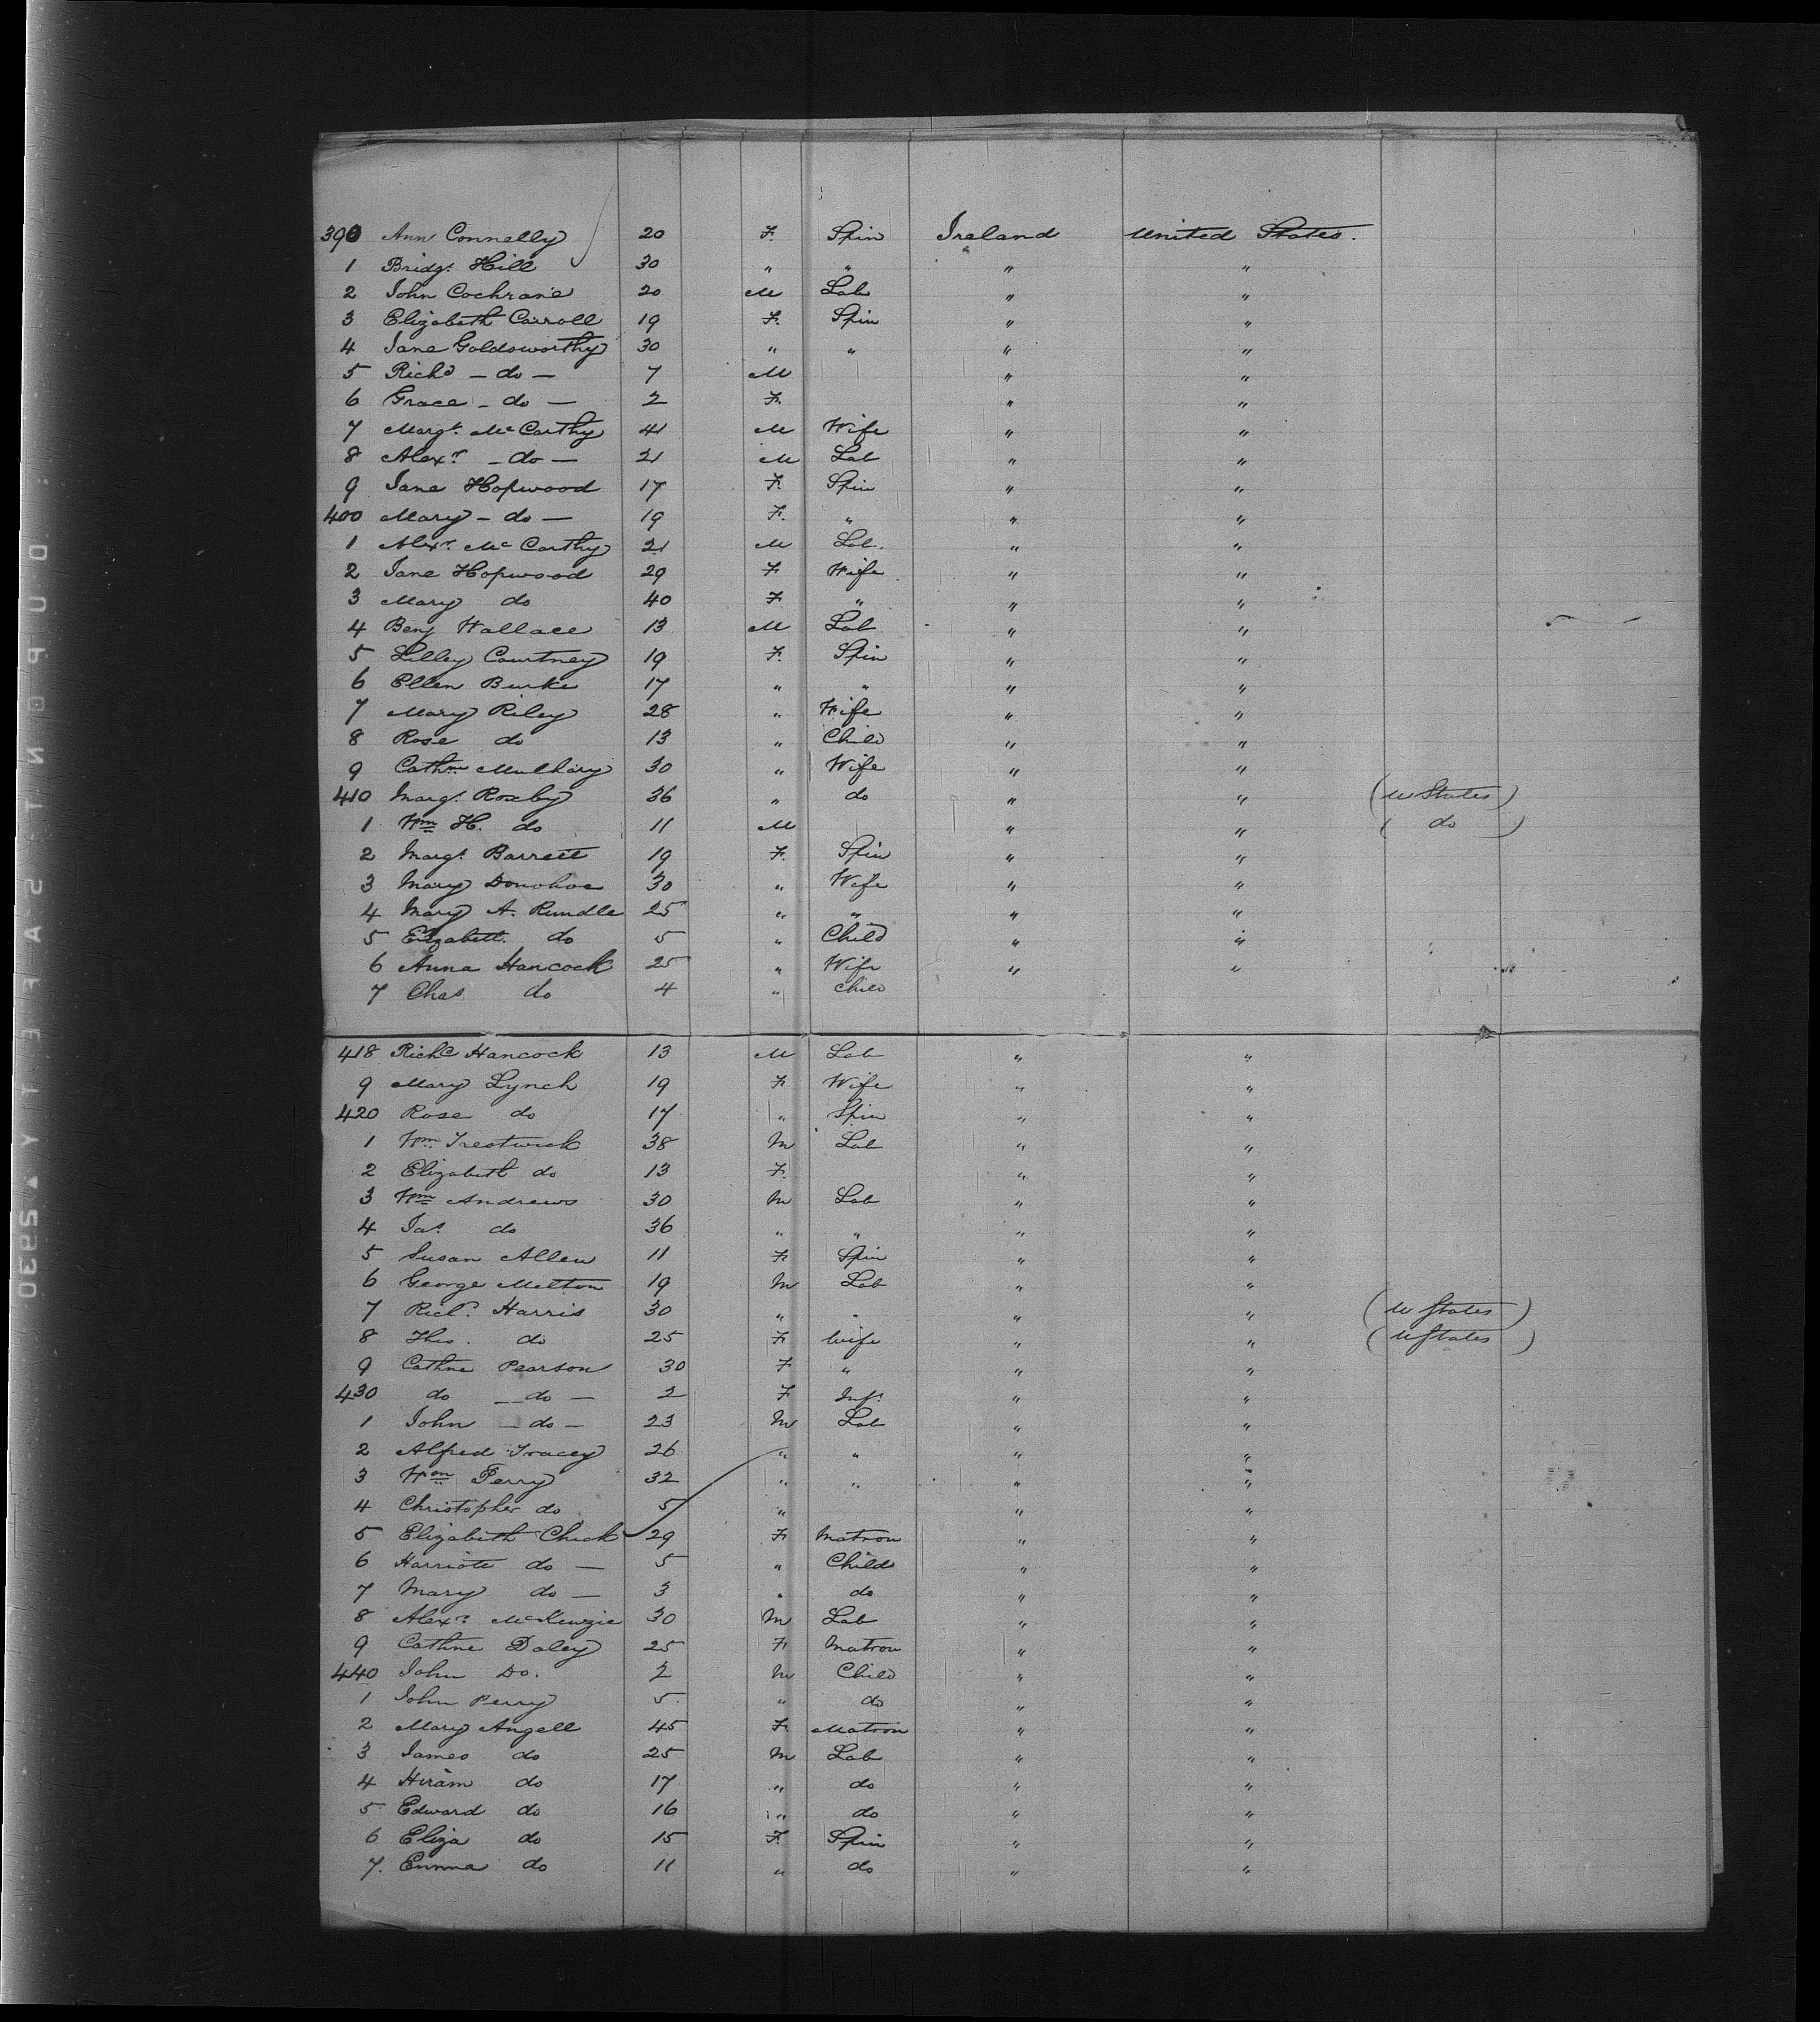 390 Ann Connelly 20 F. Spin Ireland United States.
1 Bridgt Hill 30 " " " "
2 John Cochrane 20 M Lab " "
3 Elizabeth Carroll 19 F. Spin " "
4 Jane Goldsworthy 30 " " " "
5 Richd - do - 7 M " "
6 Grace - do - 2 F. " "
7 Margt. McCarthy 41 M Wife " "
8 Alexr - do - 21 M Lab " "
9 Jane Hopwood 17 F. Spin " "
400 Mary - do - 19 F. " " "
1 Alexr. McCarthy 21 M Lab. " "
2 Jane Hopwood 29 F Wife " "
3 Mary do 40 F " " "
4 Benj Wallace 13 M Lab " "
5 Lilley Courtney 19 F. Spin " "
6 Ellen Burke 17 " " " "
7 Mary Riley 28 " Wife " "
8 Rose do 13 " Child " "
9 Cathne 30 " Wife " "
410 Margt. Roxby 36 " do " " (U States)
1 Wm H. do 11 M " " ( do )
2 Margt. Barrett 19 F. Spin " "
3 Mary Donohoe 30 " Wife " "
4 Mary A. Rundle 25 " " " "
5 Elizabeth do 5 " Child " "
6 Anna Hancock 25 " Wife " "
7 Chas do 4 " Child
418 Richd Hancock 13 M Lab " "
9 Mary Lynch 19 F Wife " "
420 Rose do 17 " Spin " "
1 Wm 38 M Lab " "
2 Elizabeth do 13 F. " "
3 Wm Andrews 30 M Lab " "
4 Jas. do 36 " " " "
5 Susan Allen 11 F Spin " "
6 George Melton 19 M Lab " "
7 Richd. Harris 30 " " " " (U States)
8 Thos. do 25 F Wife " " (U States)
9 Cathne Pearson 30 F " " "
430 do - do - 2 F Inft " "
1 John - do - 23 M Lab " "
2 Alfred Tracey 26 " " " "
3 Wm Perry 32 " " " "
4 Christopher do 5 " " "
5 Elizabeth Chick 29 F Matron " "
6 Harriote do - 5 " Child " "
7 Mary do - 3 " do " "
8 Alexr. McKenzie 30 M Lab " "
9 Cathne Daley 25 F Matron " "
440 John Do. 2 M Child " "
1 John Perry 5 " do " "
2 Mary Angell 45 F. Matron " "
3 James do 25 M Lab " "
4 Hiram do 17 " do " "
5 Edward do 16 " do " "
6 Eliza do 15 F. Spin " "
7. Emma do 11 " do " "